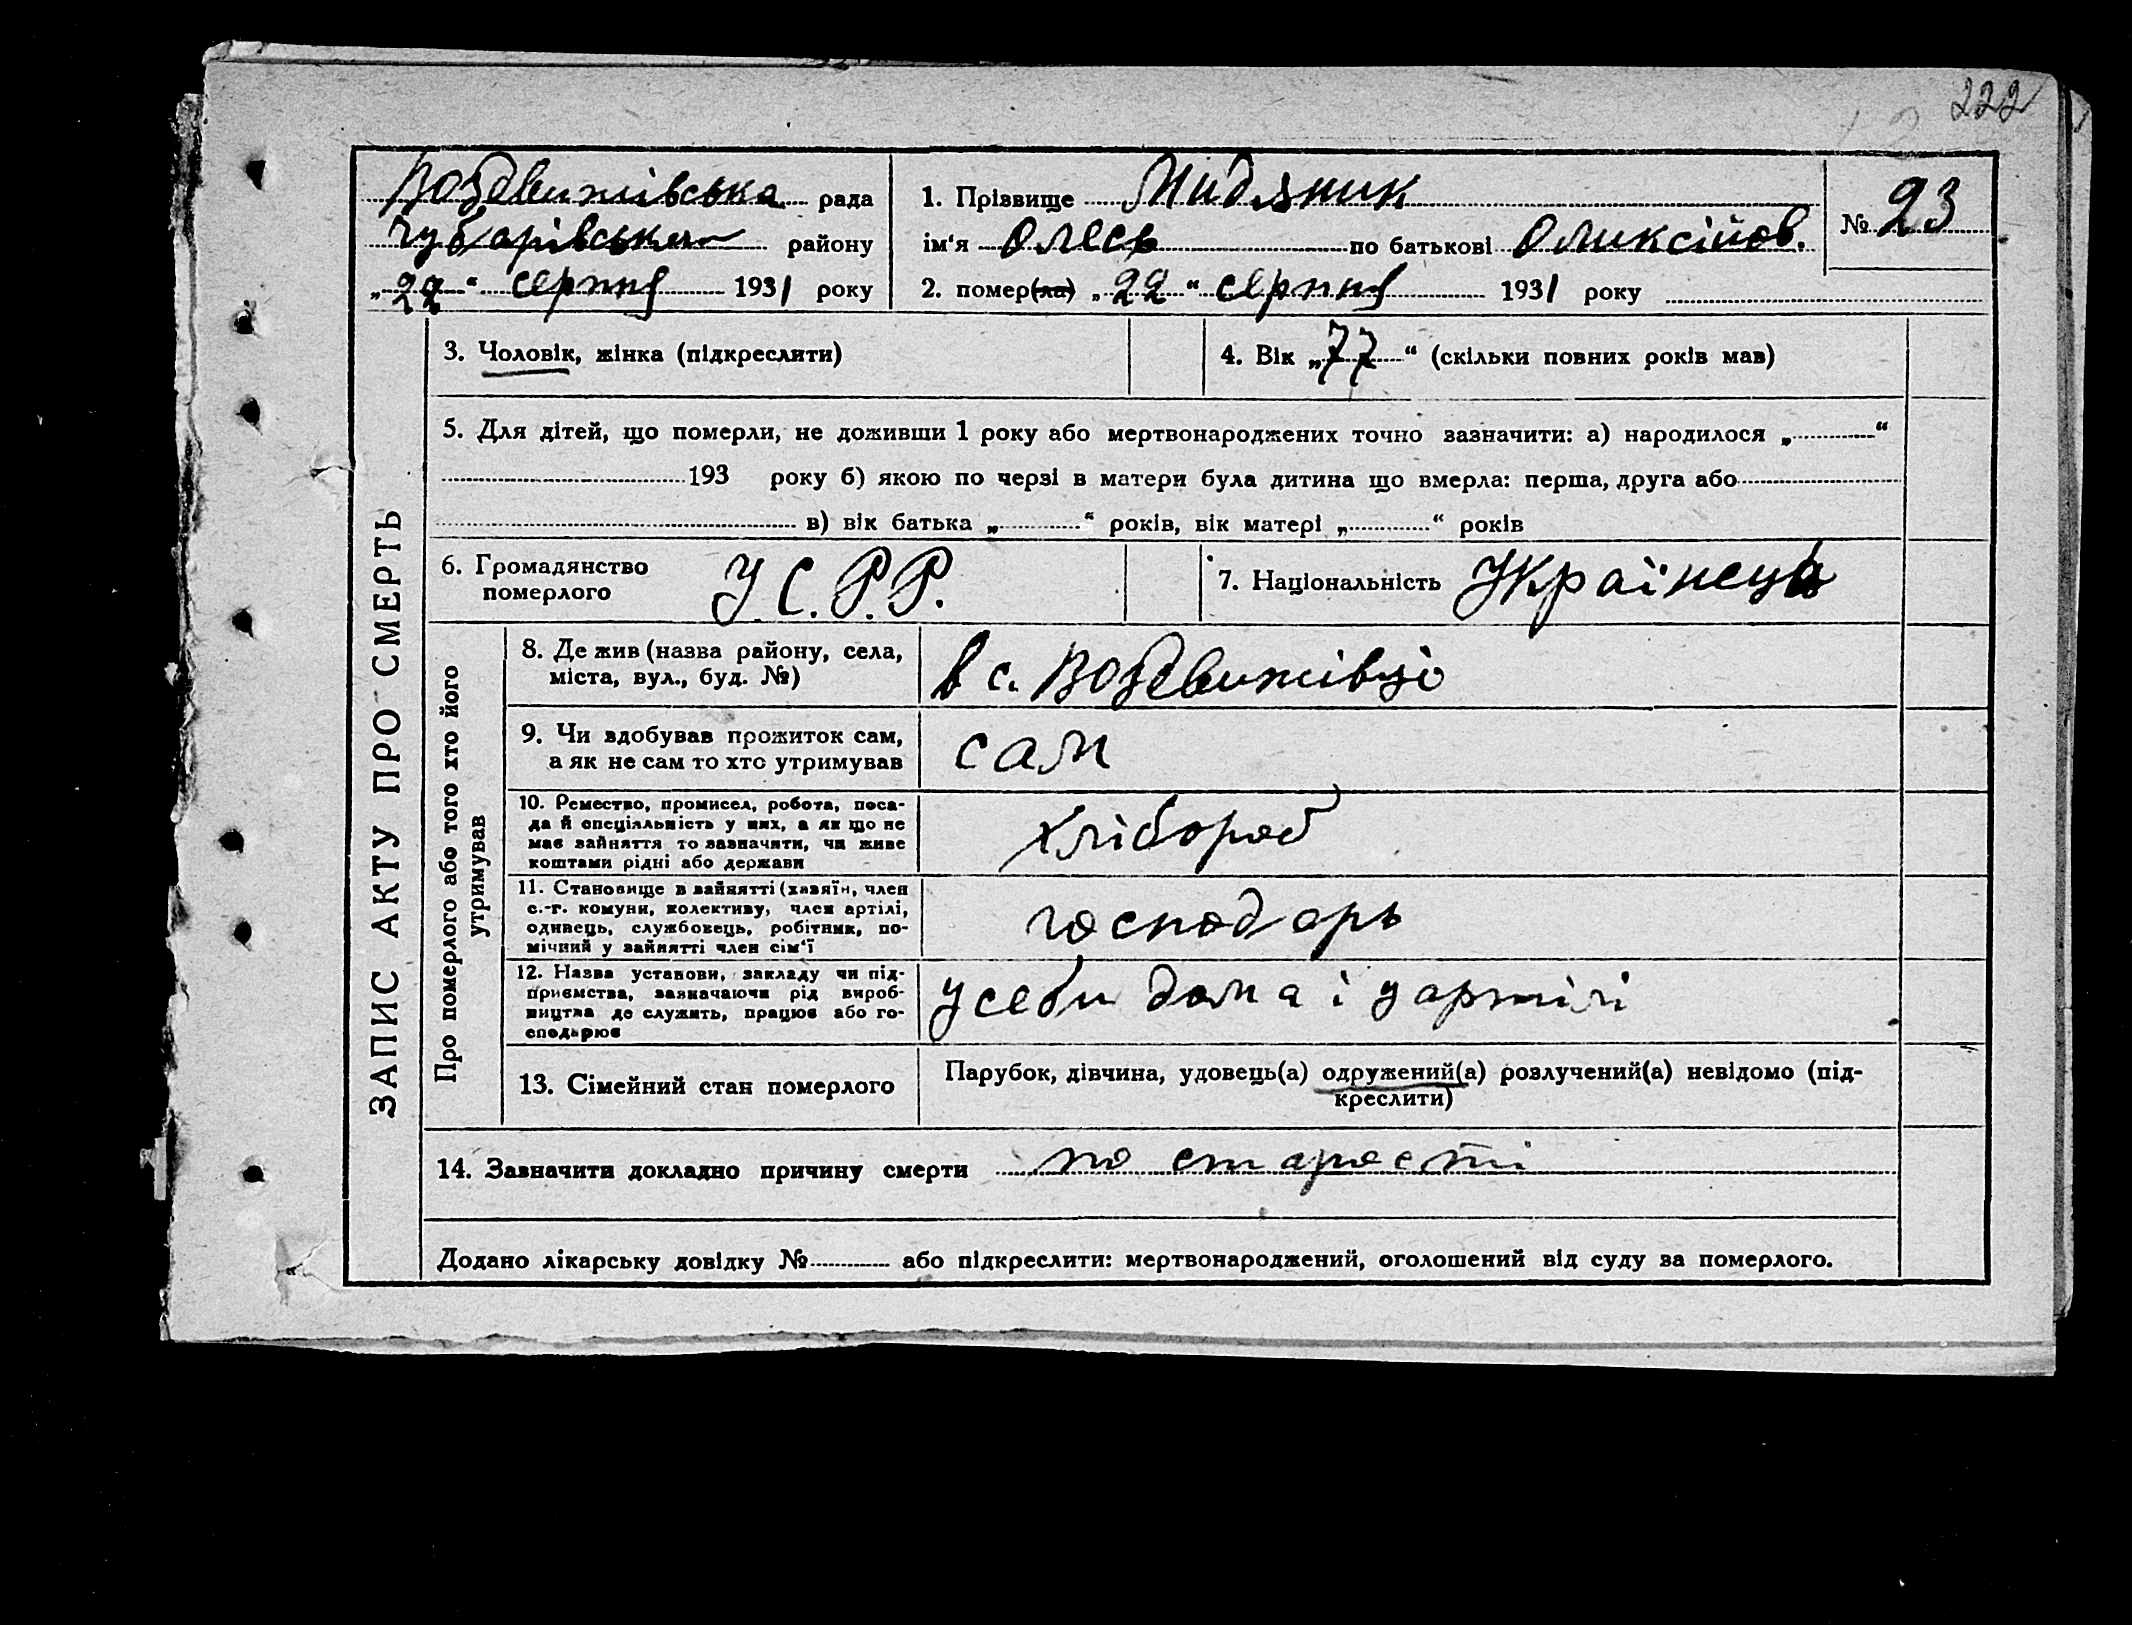 222
Воздвижівська рада
Чубарівського району
„22“ серпня 1931 року
1. Прізвище Мидяник
ім'я Олесь по батькові Оликсійов.
2. помер(ла) „22“ серпня 1931 року
№ 23
ЗАПИС АКТУ ПРО СМЕРТЬ
3. Чоловік, жінка (підкреслити)
4. Вік „77“ (скільки повних років мав)
5. Для дітей, що померли, не доживши 1 року або мертвонароджених точно зазначити: а) народилося „ “
193 року б) якою по черзі в матери була дитина що вмерла: перша, друга або
в) вік батька „ “ років, вік матері „ “ років
6. Громадянство
померлого У.С.Р.Р.
7. Національність Українець
Про померлого або того хто його
утримував
8. Де жив (назва району, села,
міста, вул., буд. №)
в с. Воздвижівці
9. Чи здобував прожиток сам,
а як не сам то хто утримував
сам
10. Ремество, промисел, робота, поса-
да й спеціяльність у них, а як що не
має зайняття то зазначити, чи живе
коштами рідні або держави
хлібороб
11. Становище в зайнятті (хазяїн, член
с.-г. комуни, колективу, член артілі,
одинець, службовець, робітник, по-
мічний у зайнятті член сім'ї
господарь
12. Назва установи, закладу чи під-
приємства, зазначаючи рід вироб-
ництва де служить, працює або го-
сподарює
у себи дома і у артілі
13. Сімейний стан померлого
Парубок, дівчина, удовець(а) одружений(а) розлучений(а) невідомо (під-
креслити)
14. Зазначити докладно причину смерти по старості
Додано лікарську довідку № або підкреслити: мертвонароджений, оголошений від суду за померлого.